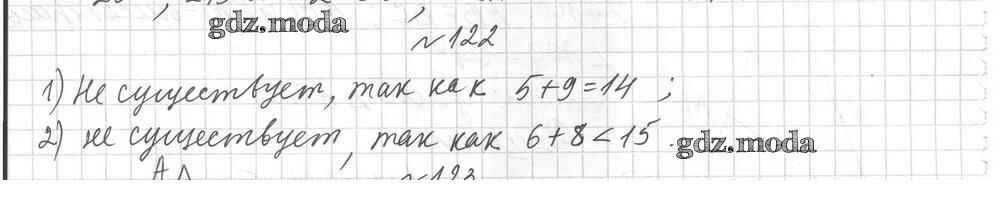 gdz.moda
№122
1) Не существует, так как 5+9=14 ;
2) не существует, так как 6+8<15 .
gdz.moda
№123